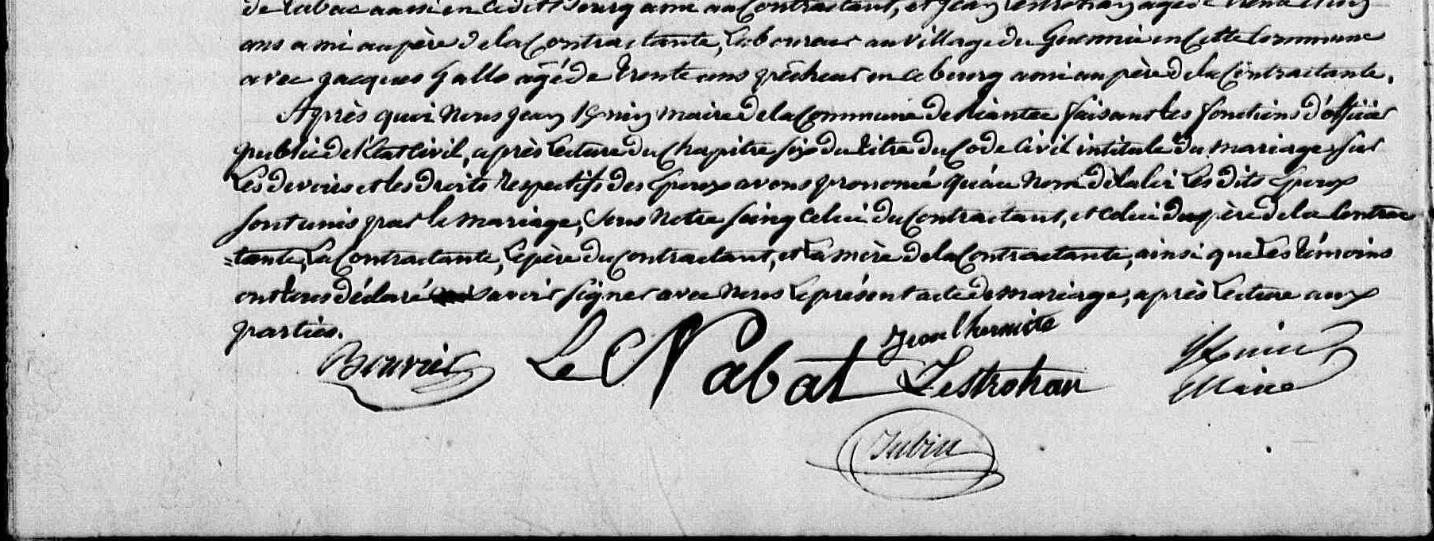 de tabac aussi en cedit Bourg ami au Contractant, et Jean Lestrohan agé de trente
ans ami au père de la Contractante, Laboureur au village du en Cette Commune
avec jacques Gallo agé de trente ans pêcheur en ce bourg ami au père de la Contractante.
Après quoi Nous jean maire de la Commune de Riantec faisant les fonctions d'officier
public de l'Etat Civil, après lecture du Chapitre six du titre du Code Civil intitulé du mariage sur
Les devoirs et les droits Respectifs des Epoux avons prononcé qu'au Nom de la loi Les dits Epoux
sont unis par le mariage, sous Notre seing Celui du Contractant, et Celui du père de la Contrac
=tante, La Contractante, le père du Contractant, et la mère de la Contractante, ainsi que Les témoins
ont tous déclaré savoir signer avec Nous le présent acte de mariage, après Lecture aux
parties.
Jean l'hermitte
Bouvier Le Nabat Lestrohan
Maire
Jubin